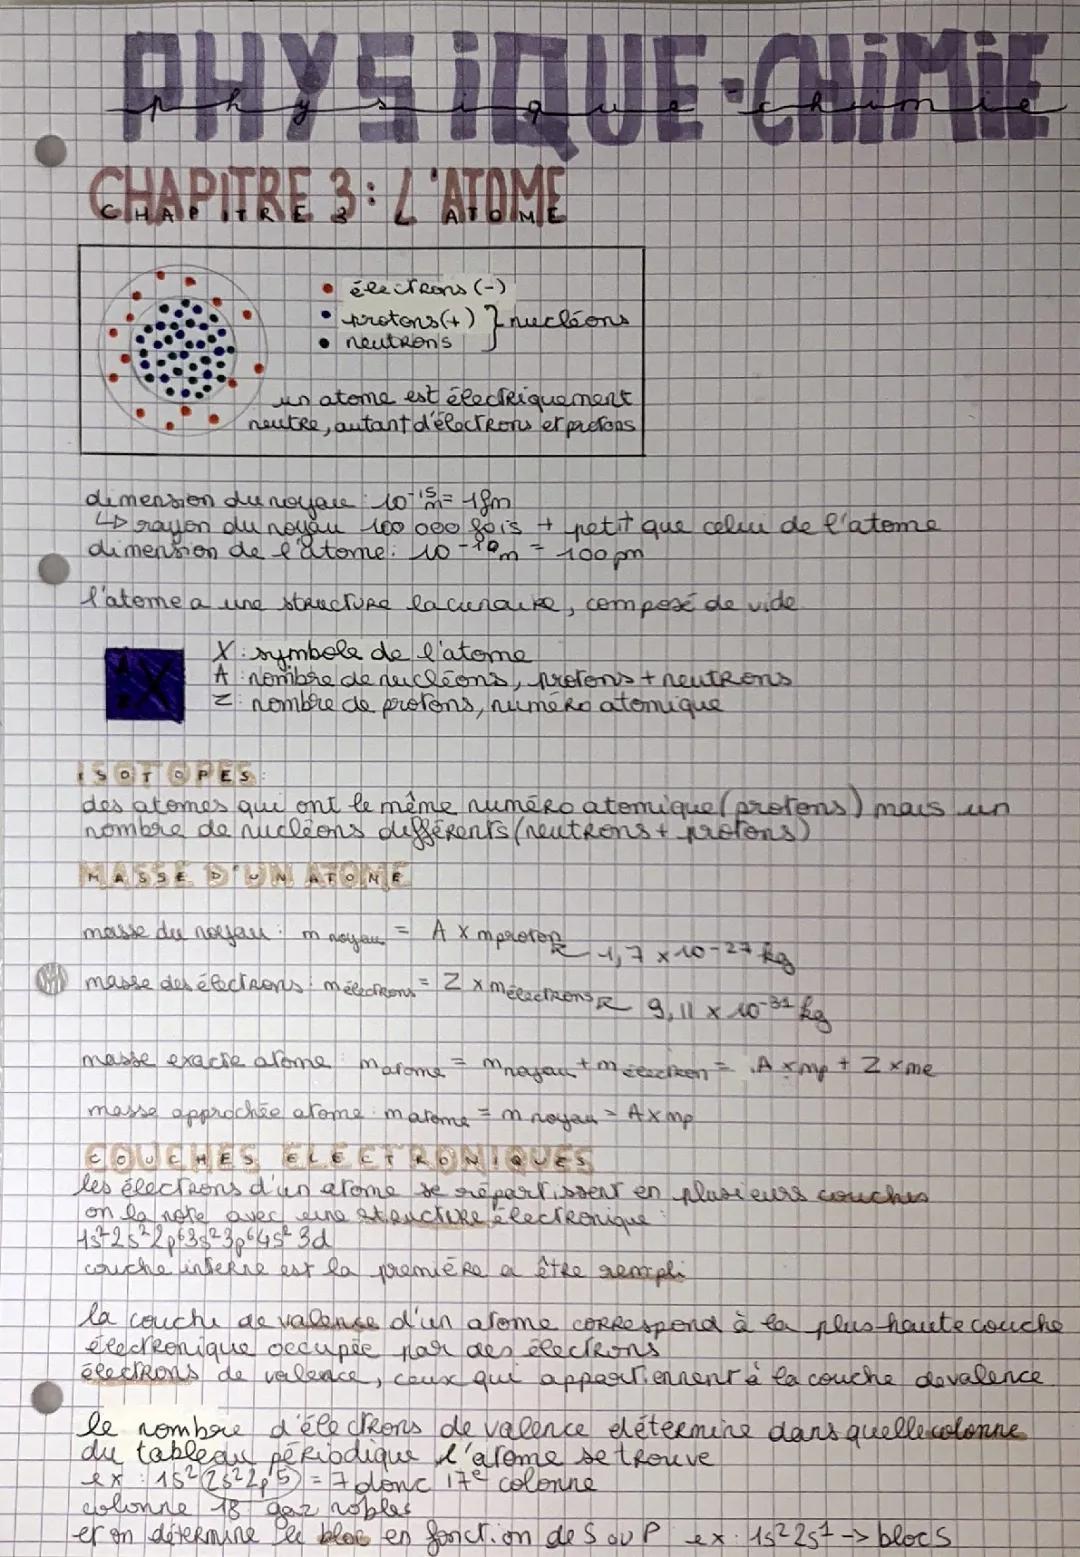 PHYSIQUE-CHIMIE
physique-chimie
CHAPITRE 3: L'ATOME
CHAPITRE 3 L'ATOME
électrons (-)
protons (+) } nucléons
neutrons
un atome est électriquement
neutre, autant d'électrons et protons
dimension du noyau : 10⁻¹⁵ m = 1fm
↳ rayon du noyau 100 000 fois + petit que celui de l'atome
dimension de l'atome : 10⁻¹⁰ m = 100 pm
l'atome a une structure lacunaire, composé de vide
A X
Z
X : symbole de l'atome
A : nombre de nucléons, protons + neutrons
Z : nombre de protons, numéro atomique
ISOTOPES :
des atomes qui ont le même numéro atomique (protons) mais un
nombre de nucléons différents (neutrons + protons)
MASSE D'UN ATOME
masse du noyau : m noyau = A x mproton
1,7 x 10⁻²⁷ kg
masse des électrons : mélectrons = Z x mélectrons
9,11 x 10⁻³¹ kg
masse exacte atome : matome = mnoyau + m électron = A x mp + Z x me
masse approchée atome : matome = m noyau = A x mp
COUCHES ELECTRONIQUES
les électrons d'un atome se répartissent en plusieurs couches
on la note avec une structure électronique :
1s² 2s² 2p⁶ 3s² 3p⁶ 4s² 3d
couche interne est la première a être rempli
la couche de valence d'un atome correspond à la plus haute couche
électronique occupée par des électrons
électrons de valence, ceux qui appartiennent à la couche de valence
le nombre d'électrons de valence détermine dans quelle colonne
du tableau périodique l'atome se trouve
ex : 1s² (2s² 2p⁵) = 7 donc 17e colonne
colonne 18 gaz nobles
et on détermine le bloc en fonction de S ou P ex : 1s² 2s¹ -> bloc S